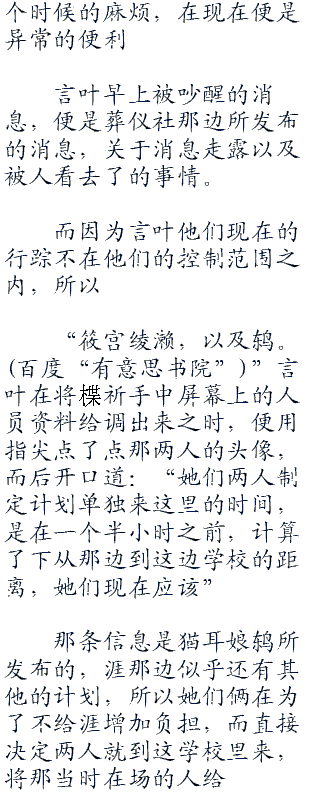 个时候的麻烦，在现在便是
异常的便利
言叶早上被吵醒的消
息，便是葬仪社那边所发布
的消息，关于消息走露以及
被人看去了的事情。
而因为言叶他们现在的
行踪不在他们的控制范围之
内，所以
“筱宫绫濑，以及鸫。
(百度“有意思书院”)”言
叶在将楪祈手中屏幕上的人
员资料给调出来之时，便用
指尖点了点那两人的头像，
而后开口道：“她们两人制
定计划单独来这里的时间，
是在一个半小时之前，计算
了下从那边到这边学校的距
离，她们现在应该”
那条信息是猫耳娘鸫所
发布的，涯那边似乎还有其
他的计划，所以她们俩在为
了不给涯增加负担，而直接
决定两人就到这学校里来，
将那当时在场的人给